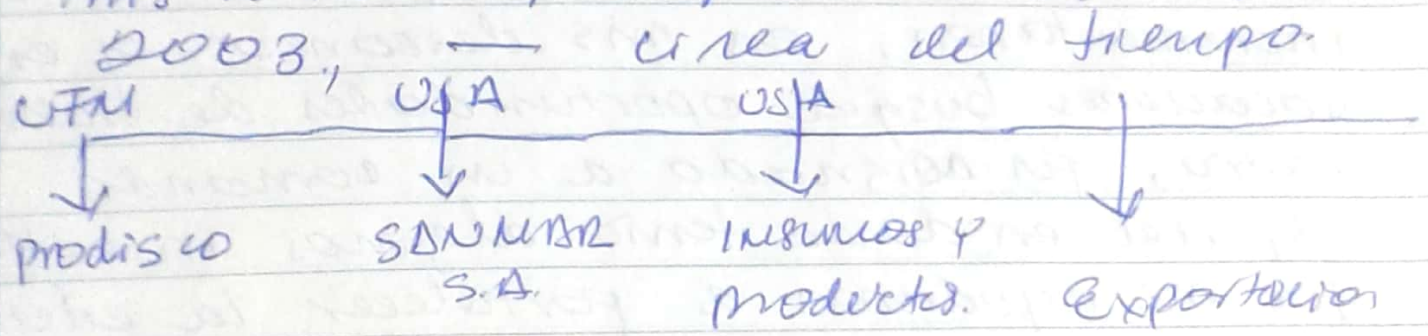 2003., — Linea del tiempo.
UTM USA USA
prodisco SANMAR Insumos y
S.A. productos. Exportacion